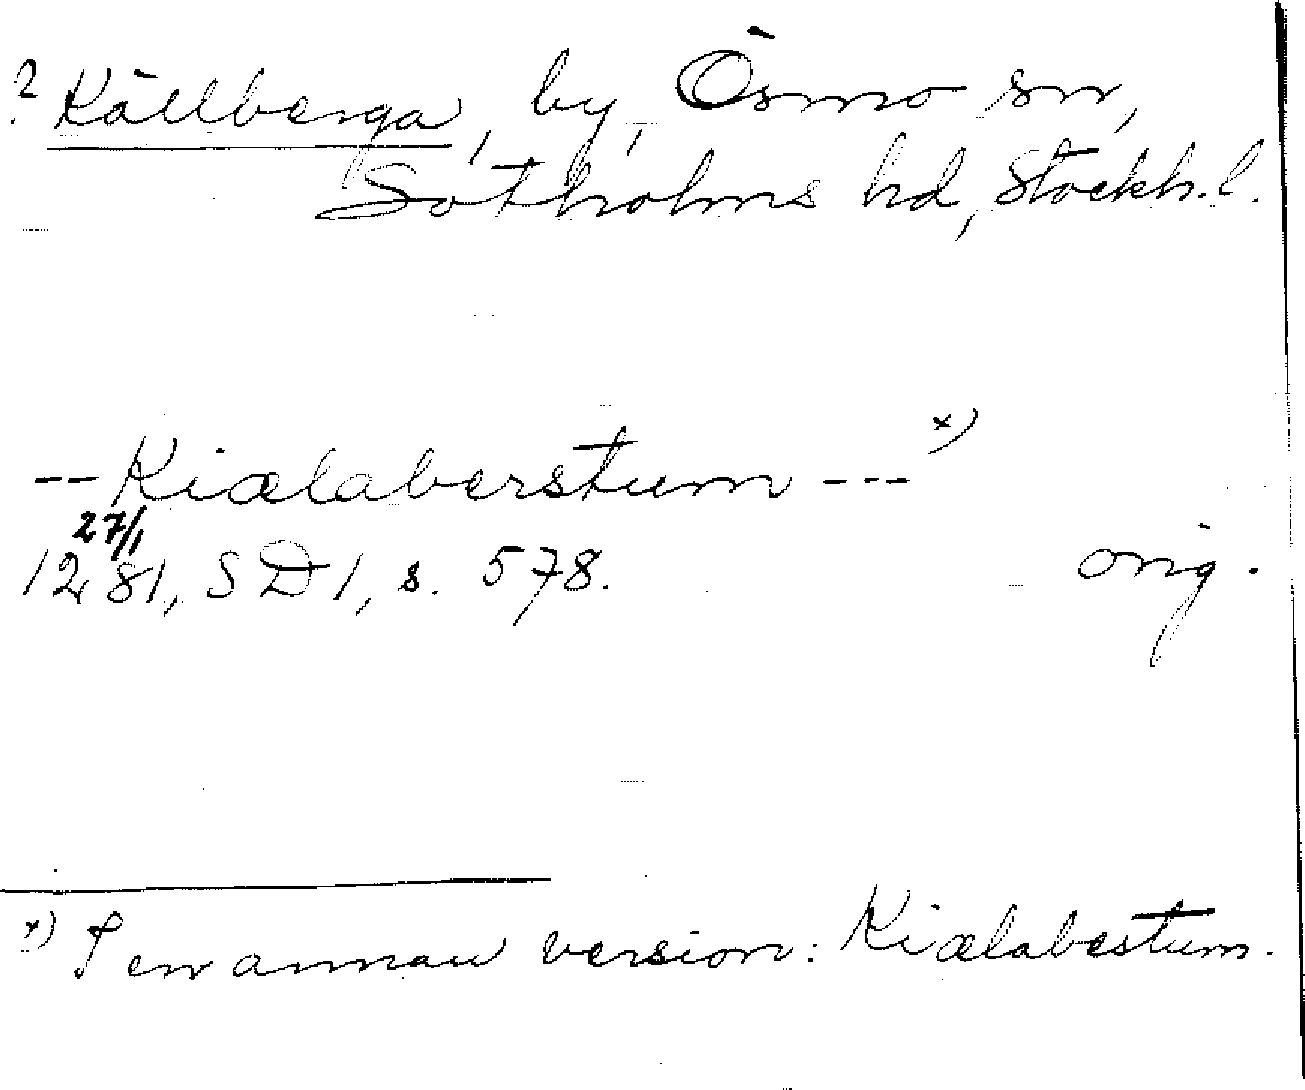 ? Källberga, by, Ösmo sn,
Sotholms hd, Stockh. l.
-- Kiælaberstum --- x)
27/1
1281, SD 1, s. 578. orig.
x) I en annan version: Kiælabestum.